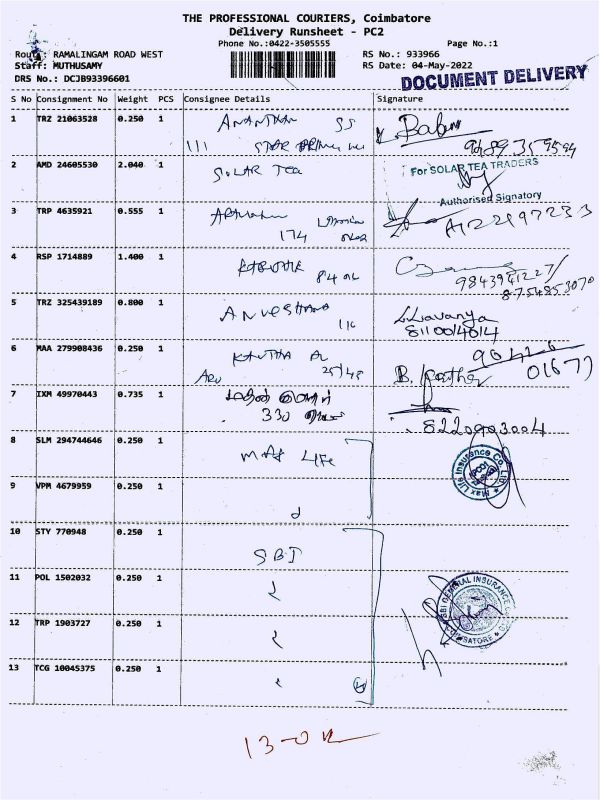 THE PROFESSIONAL COURIERS, Coimbatore
Delivery Runsheet - PC2
Phone No.:0422-3505555
Page No.:1
Route: RAMALINGAM ROAD WEST
RS No.: 933966
Staff: MUTHUSAMY
RS Date: 04-May-2022
DRS No.: DCJB93396601
DOCUMENT DELIVERY
S No Consignment No Weight PCS Consignee Details Signature
1 TRZ 21063528 0.250 1 SS
111 STAR
2 AMD 24605530 2.040 1 SOLAR TEA
For SOLAR TEA TRADERS
Authorised Signatory
3 TRP 4635921 0.555 1
174
4 RSP 1714889 1.400 1
84
9843941227/
8754853070
5 TRZ 325439189 0.800 1
Lavanya
8110040414
6 MAA 279908436 0.250 1
25/48
01677
7 IXM 49970443 0.735 1
330
8220903004
8 SLM 294744646 0.250 1 MAX LIFE
Max Life Insurance Co. Ltd
9 VPM 4679959 0.250 1
10 STY 770948 0.250 1 SBI
11 POL 1502032 0.250 1
SBI GENERAL INSURANCE CO
COIMBATORE
12 TRP 1903727 0.250 1
13 TCG 10045375 0.250 1
13-OK